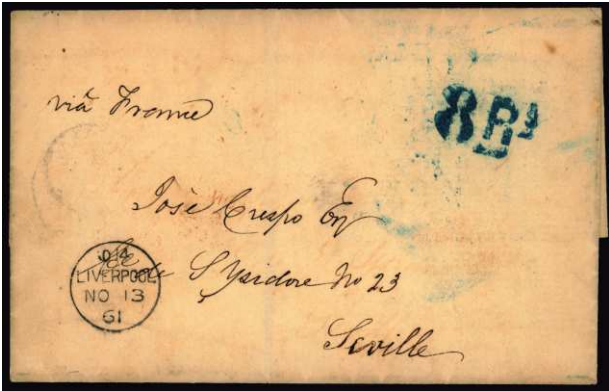 viâ France
8 Rs
José Crespo Esq
Calle de S Ysidore No 23
Seville
LIVERPOOL
NO 13
61